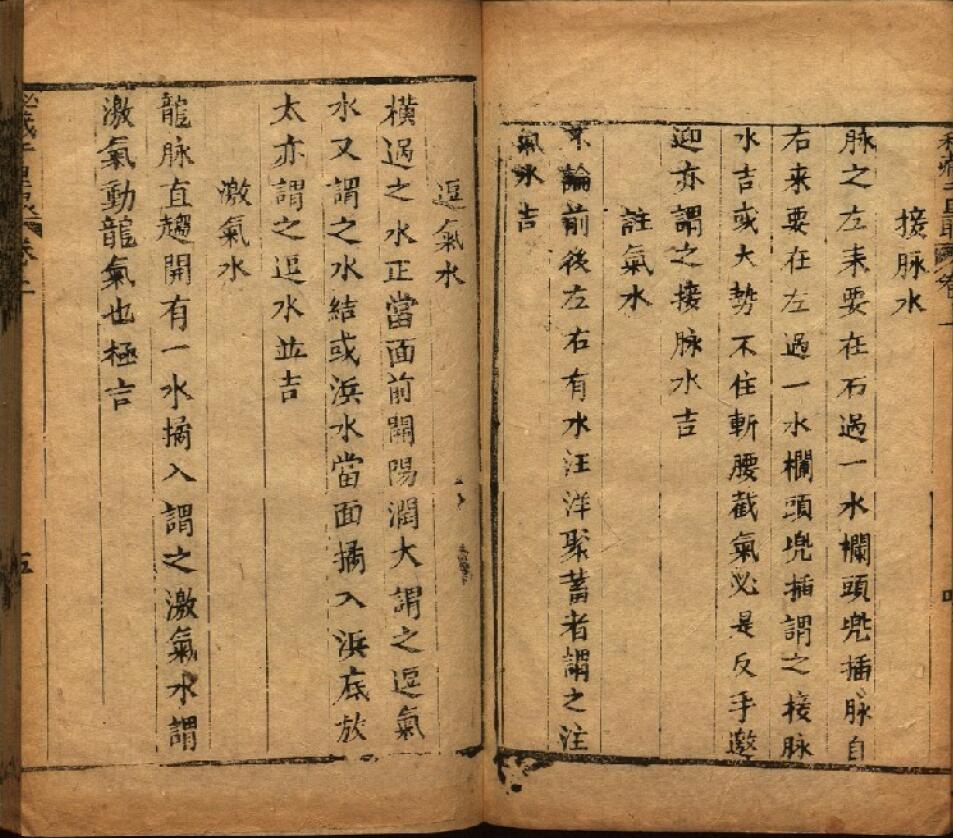 接脉水
脉之左来要在右過一水欄頭兜插脉自
右来要在左過一水欄頭兜插謂之接脉
水吉或大勢不住斬腰截氣必是反手邀
迎亦謂之接脉水吉
註氣水
不論前後左右有水汪洋聚蓄者謂之注
氣水吉
逗氣水
横過之水正當面前開陽濶大謂之逗氣
水又謂之水結或浜水當面插入浜底放
太亦謂之逗水並吉
激氣水
龍脉直趨開有一水插入謂之激氣水謂
激氣動龍氣也極吉
五